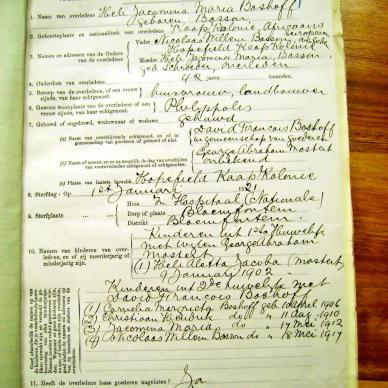 1. Naam van overledene Heli Jacomina Maria Boshoff
geboren, Basson.
2. Geboorteplaats en nationaliteit van overledene Kaap Kolonie Africaans
European
3. Namen en adressen van de Ouders van de overledene
Vader Nicolaas Willem Basson, overleden
Hopefield Kaap Kolonie
Moeder Heli Jacomina Maria, Basson,
geb Schreuder, overleden
4. Ouderdom van overledene 42 jaren maanden.
5. Beroep van de overledene, of een vrouw zijnde, van haar echtgenoot. huisvrouw, landbouwer
6. Gewone woonplaats van de overledene of een vrouw zijnde, van haar echtgenoot. Philippolis
7. Gehuwd of ongehuwd, weduwnaar of weduwe gehuwd
David Francois Boshoff
in gemeenschap van goederen
George Abraham Mostert
Plaats van laatste huwelik Hopefield Kaap Kolonie
8. Sterfdag: Op 1st Januari 1921
9. Sterfplaats
Huis In Hospitaal (Nationals)
Dorp of plaats Bloemfontein
Distrikt Bloemfontein.
10. Namen van kinderen van overledene, en of zij meerderjarig of minderjarig zijn.
Kinderen uit 1ste Huwelik
met wijlen George Abraham
Mostert
(1) Heli Aletta Jacoba (Mostert,
9 Januari 1902
Kinderen uit 2de huwelik met
David Francois Boshoff
(1) Cornelia Margrieta Boshoff geb 12 April 1906
(2) Christiaan Hendrik do " 11 Aug 1910
(3) Jacomina Maria do " 17 Mei 1912
(4) Nicolaas Willem Basson do " 18 Mei 1917
11. Heeft de overledene losse goederen nagelaten? Ja